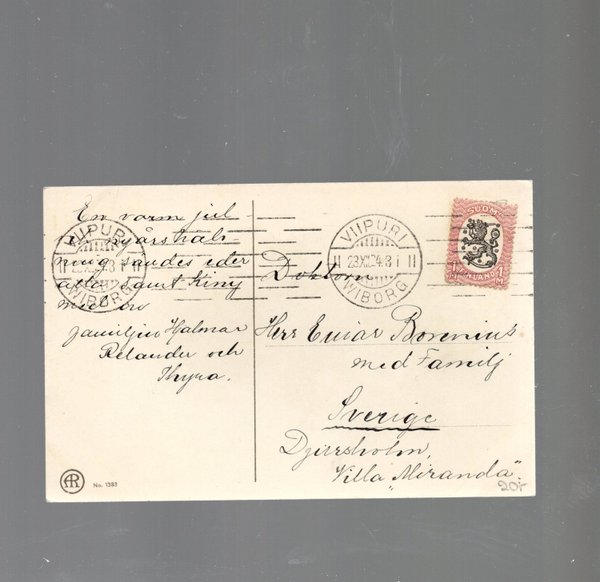 En varm jul
nyårshäls
ning sändes eder
alla samt Kiny
med oss
familjen Halmar
Relander och
Thyra.
VIIPURI
23.XII.24.8 i
WIBORG
VIIPURI
23.XII.24.8 i
WIBORG
SUOMI
1 FINLAND 1
M
Doktorn
Herr Einar Borenius
med Familj
Sverige
Djursholm,
Villa "Miranda".
AR
No. 1383
20:-